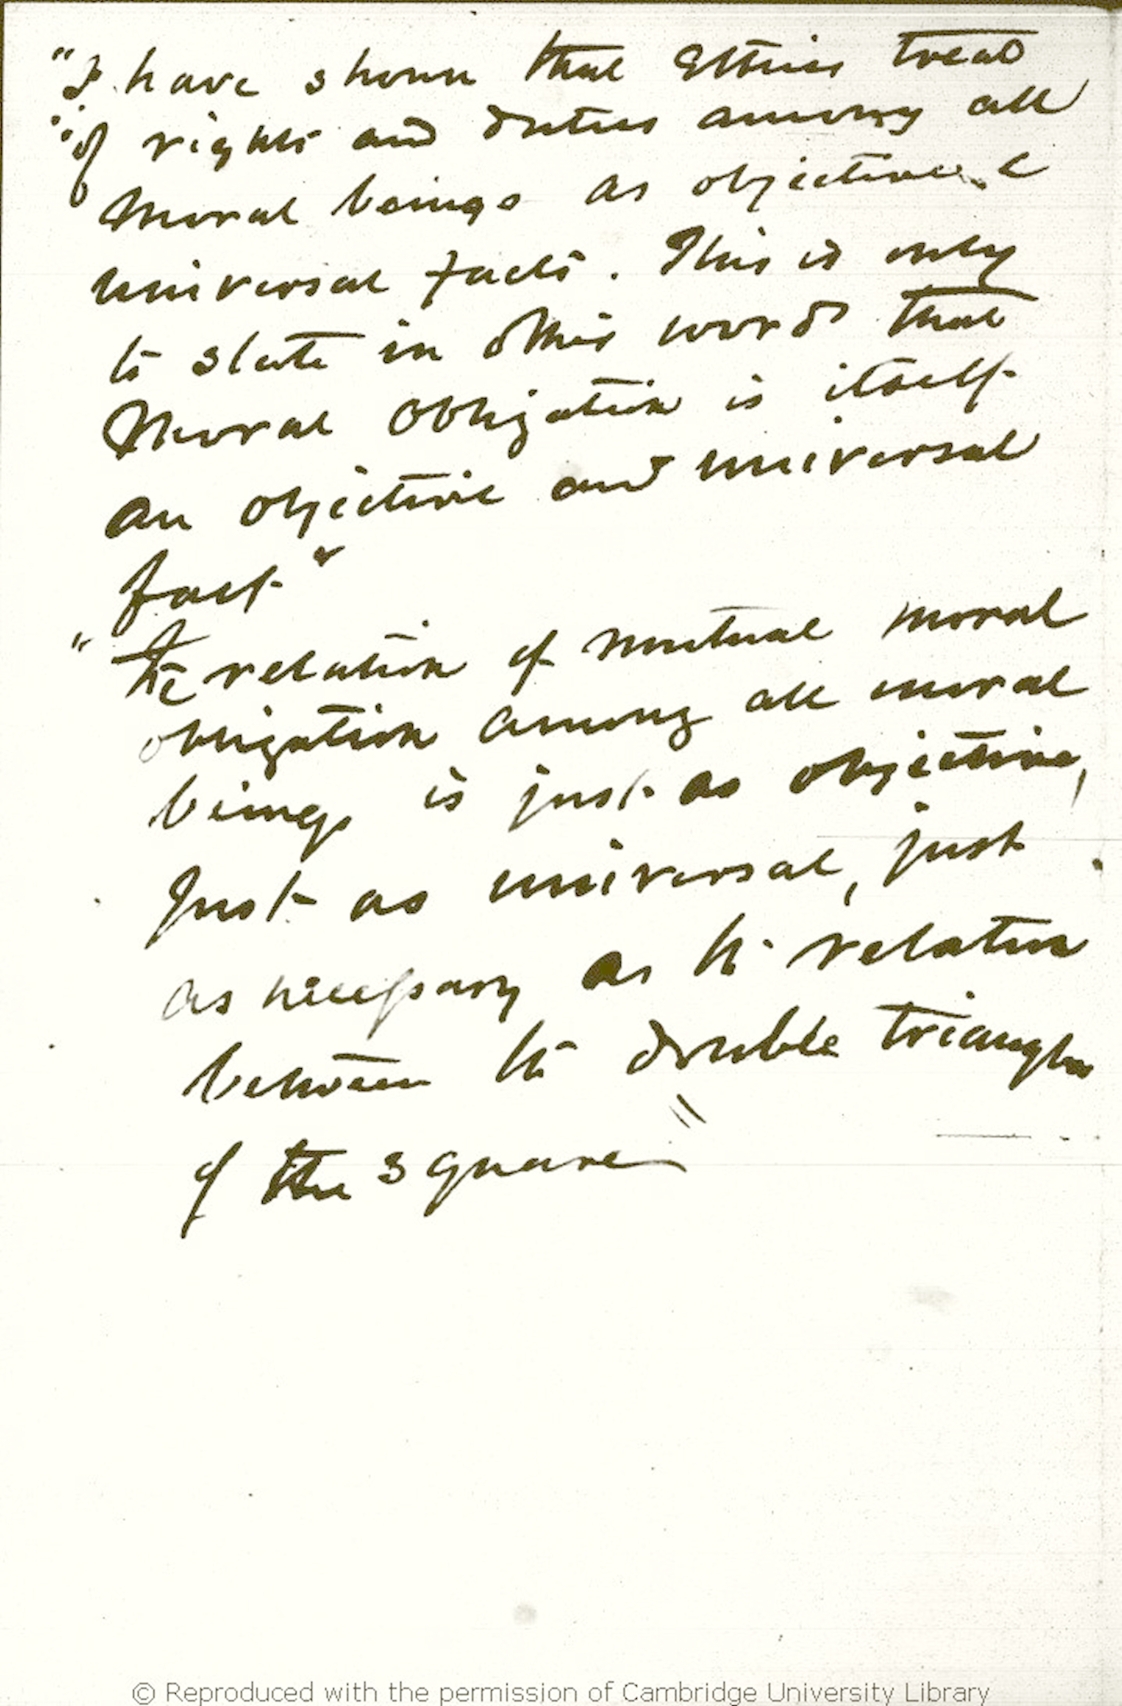 "I have shown that Ethics treat
"of rights and duties among all
Moral beings as objective &
universal facts. This is only
to state in other words that
Moral Obligation is itself
an objective and universal
fact"
"The relation of mutual moral
obligation among all moral
beings is just as objective,
Just as universal, just
as necessary as the relation
between the double triangles
of the square"
© Reproduced with the permission of Cambridge University Library